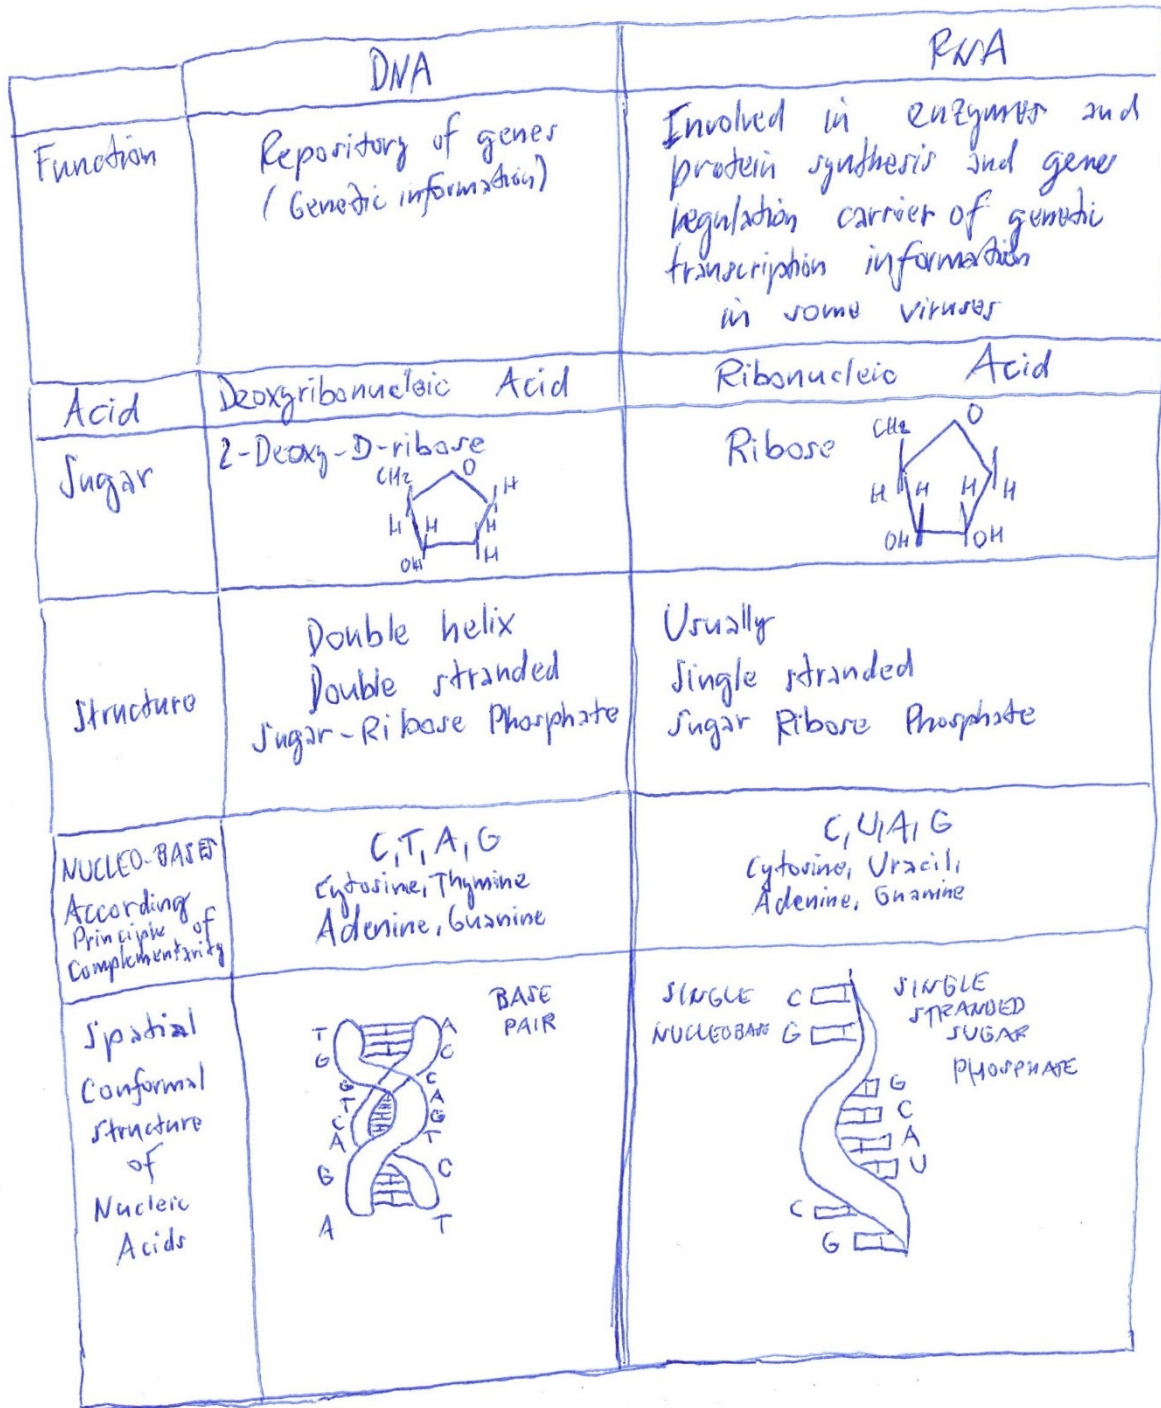 DNA
RNA
Function
Repository of genes
(Genetic information)
Involved in enzymes and
protein synthesis and gene
regulation carrier of genetic
transcription information
in some viruses
Acid
Deoxyribonucleic Acid
Ribonucleic Acid
Sugar
2-Deoxy-D-ribose
CH2
O
H
H H H
OH H
Ribose
CH2
O
H H H H
OH OH
Structure
Double helix
Double stranded
Sugar-Ribose Phosphate
Usually
Single stranded
Sugar Ribose Phosphate
NUCLEO-BASES
According
Principle of
Complementarity
C, T, A, G
Cytosine, Thymine
Adenine, Guanine
C, U, A, G
Cytosine, Uracil,
Adenine, Guanine
Spatial
Conformal
Structure
of
Nucleic
Acids
BASE
PAIR
T A
G C
G C
T A
C G
A T
G C
A T
SINGLE
NUCLEOBASE
C
G
SINGLE
STRANDED
SUGAR
PHOSPHATE
G
C
A
U
C
G